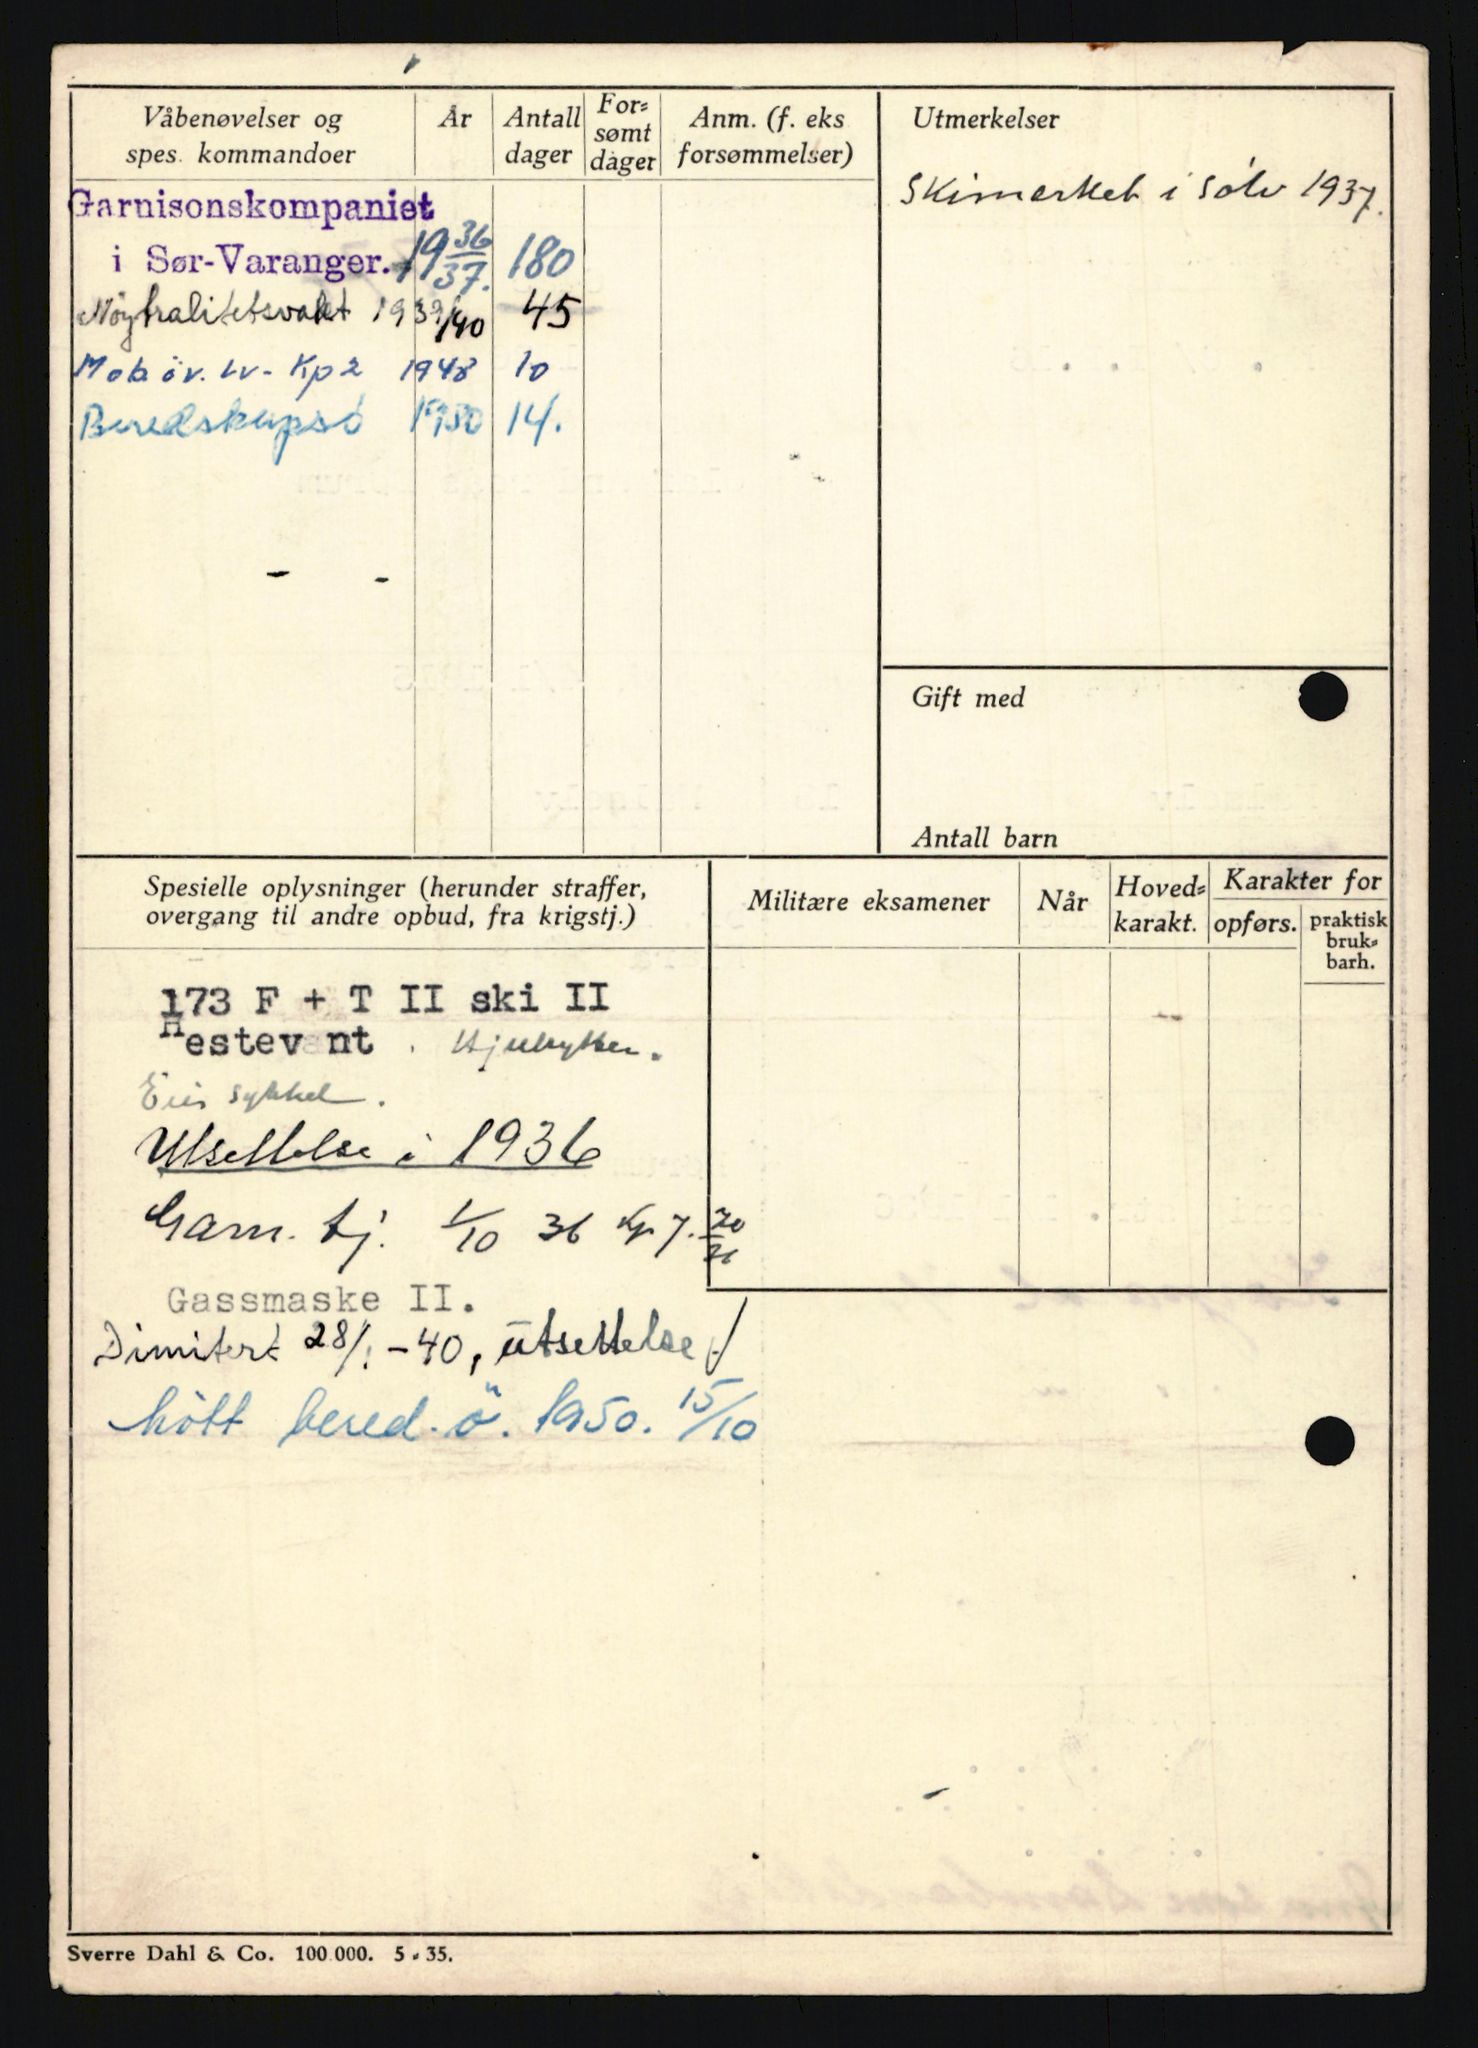 Våbenøvelser og
spes. kommandoer
År
Antall
dager
For-
sømt
dager
Anm. (f. eks
forsømmelser)
Utmerkelser
Garnisonskompaniet
i Sør-Varanger. 19 36/37. 180
Nøytralitetsvakt 1939/40 45
Mob öv. Lv- Kp 2 1948 10
Beredskapsö 1950 14.
Skimerket i sølv 1937.
Gift med
Antall barn
Spesielle oplysninger (herunder straffer,
overgang til andre opbud, fra krigstj.)
Militære eksamener
Når
Hoved-
karakt.
Karakter for
opførs.
praktisk
bruk-
barh.
173 F + T II ski II
Hestevant.
Eier sykkel.
Utsettelse i 1936
Garn. tj. 1/10 36 Kp 7.
Gassmaske II.
Dimitert 28/1-40, utsettelse
Mött bered. ö. 1950. 15/10
Sverre Dahl & Co. 100.000. 5 - 35.